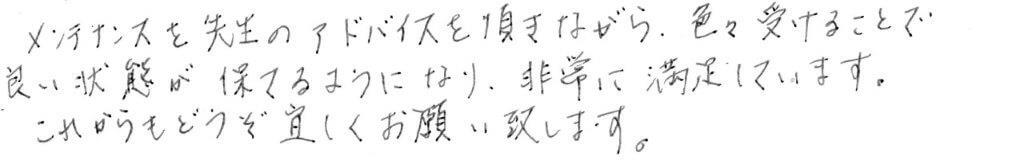 メンテナンスを先生のアドバイスを頂きながら、色々受けることで
良い状態が保てるようになり、非常に満足しています。
これからもどうぞ宜しくお願い致します。